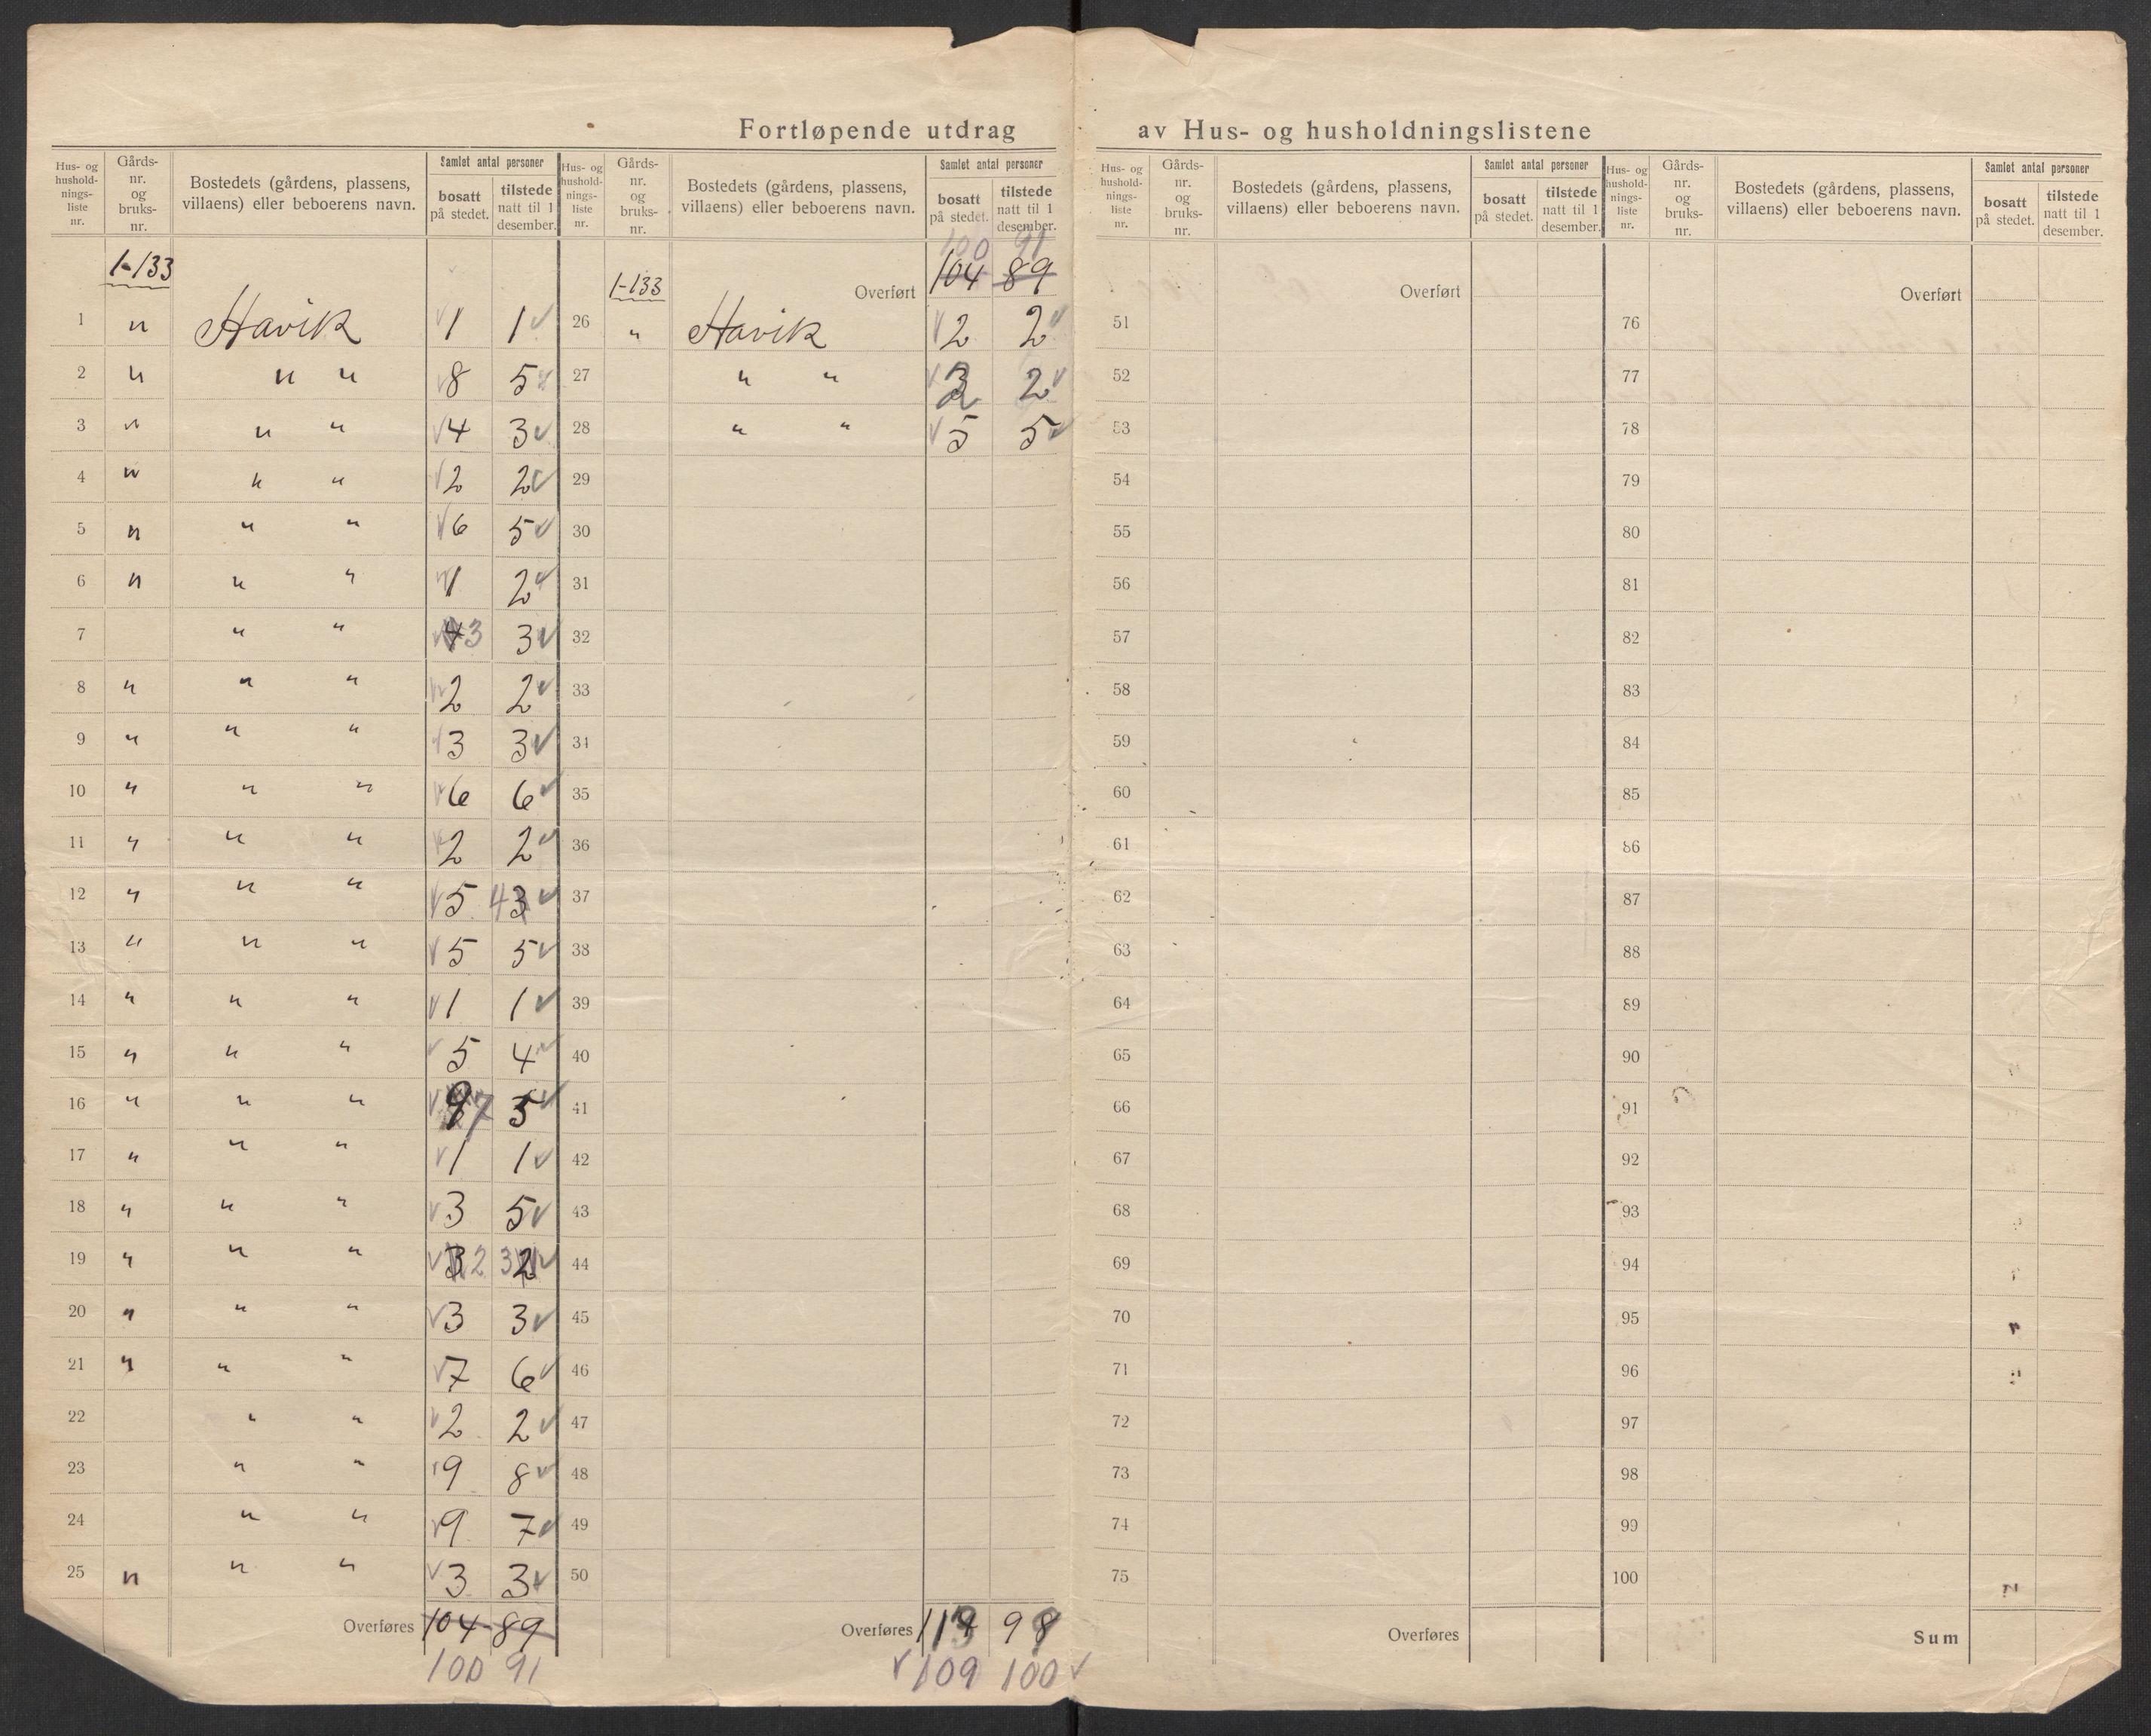 Fortløpende utdrag av Hus- og husholdningslistene
Hus- og hushold- nings- liste nr. Gårds- nr. og bruks- nr. Bostedets (gårdens, plassens, villaens) eller beboerens navn. Samlet antal personer bosatt på stedet. tilstede natt til 1 desember.
1-133
1 " Havik 1 1
2 " " " 8 5
3 " " " 4 3
4 " " " 2 2
5 " " " 6 5
6 " " " 1 2
7 " " 4 3 3
8 " " " 2 2
9 " " " 3 3
10 " " " 6 6
11 " " " 2 2
12 " " " 5 4 3
13 " " " 5 5
14 " " " 1 1
15 " " " 5 4
16 " " " 9 7 5
17 " " " 1 1
18 " " " 3 5
19 " " " 3 2 3 2
20 " " " 3 3
21 " " " 7 6
22 " " 2 2
23 " " 9 8
24 " " 9 7
25 " " " 3 3
Overføres 104 89
100 91
Hus- og hushold- nings- liste nr. Gårds- nr. og bruks- nr. Bostedets (gårdens, plassens, villaens) eller beboerens navn. Samlet antal personer bosatt på stedet. tilstede natt til 1 desember.
100 91
1-133 Overført 104 89
26 " Havik 2 2
27 " " 2 2
28 " " 5 5
29
30
31
32
33
34
35
36
37
38
39
40
41
42
43
44
45
46
47
48
49
50
Overføres 113 98
109 100
Hus- og hushold- nings- liste nr. Gårds- nr. og bruks- nr. Bostedets (gårdens, plassens, villaens) eller beboerens navn. Samlet antal personer bosatt på stedet. tilstede natt til 1 desember.
Overført
51
52
53
54
55
56
57
58
59
60
61
62
63
64
65
66
67
68
69
70
71
72
73
74
75
Overføres
Hus- og hushold- nings- liste nr. Gårds- nr. og bruks- nr. Bostedets (gårdens, plassens, villaens) eller beboerens navn. Samlet antal personer bosatt på stedet. tilstede natt til 1 desember.
Overført
76
77
78
79
80
81
82
83
84
85
86
87
88
89
90
91
92
93
94
95
96
97
98
99
100
Sum